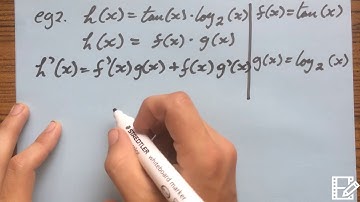 eg2. h(x) = tan(x) · log₂(x)
h(x) = f(x) · g(x)
h'(x) = f'(x)g(x) + f(x)g'(x)
f(x) = tan(x)
g(x) = log₂(x)
STAEDTLER
whiteboard marker